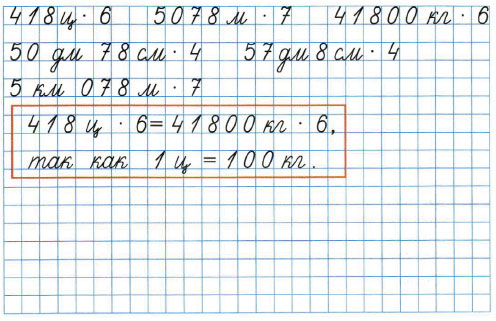 418 ц · 6 5078 м · 7 41800 кг · 6
50 дм 78 см · 4 57 дм 8 см · 4
5 км 078 м · 7
418 ц · 6 = 41800 кг · 6,
так как 1 ц = 100 кг.